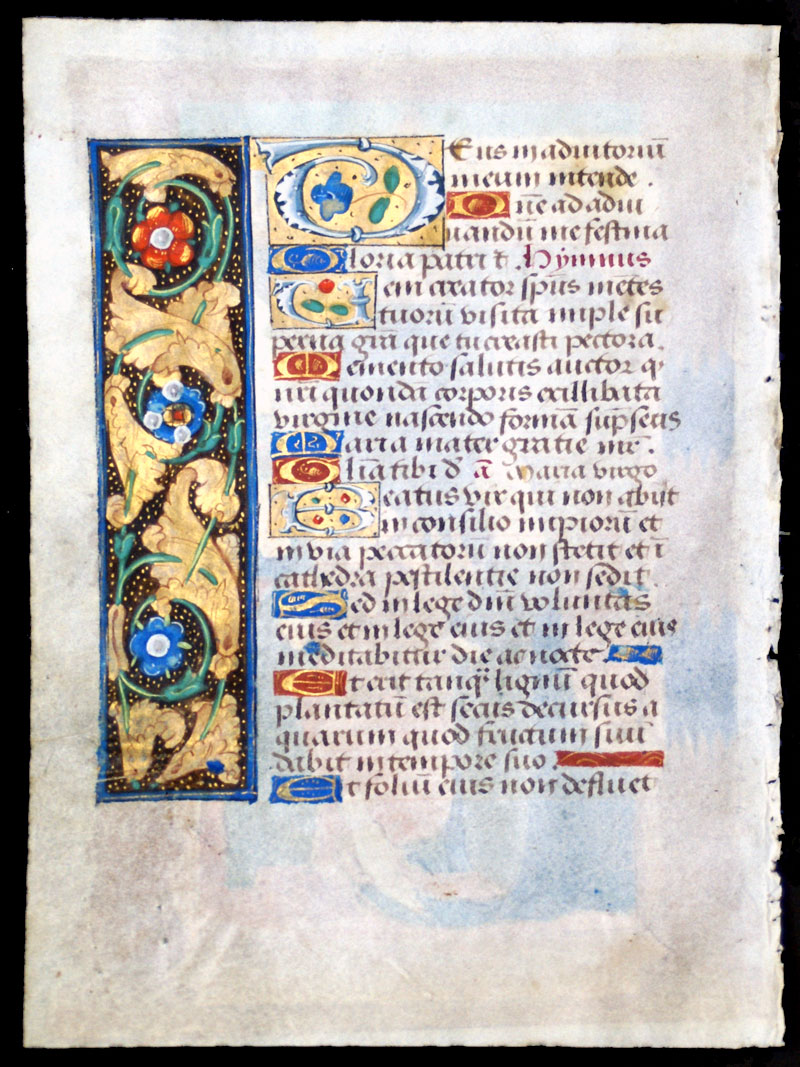 Deus in adiutoriū
meum intende .
Dn̄e ad adiu
uandū me festina
Gloria patri ⁊ . Hymnus
Veni creator spūs mētes
tuorū visita imple su
perna grā que tu creasti pectora .
Memento salutis auctor q
nr̄i quondā corporis ex illibata
virgine nascendo formā sūpseris
Maria mater gratie mr̄ .
Gl̄ia tibi d̄ ā Maria virgo
Beatus vir qui non abiit
in consilio impiorū et
in via peccatorū non stetit et ī
cathedra pestilentie non sedit .
Sed in lege dn̄i voluntas
eius et in lege eius et in lege eius
meditabitur die ac nocte .
Et erit tanq̄ lignū quod
plantatū est secus decursus a
quarum quod fructum suū
dabit in tempore suo .
Et foliū eius non defluet